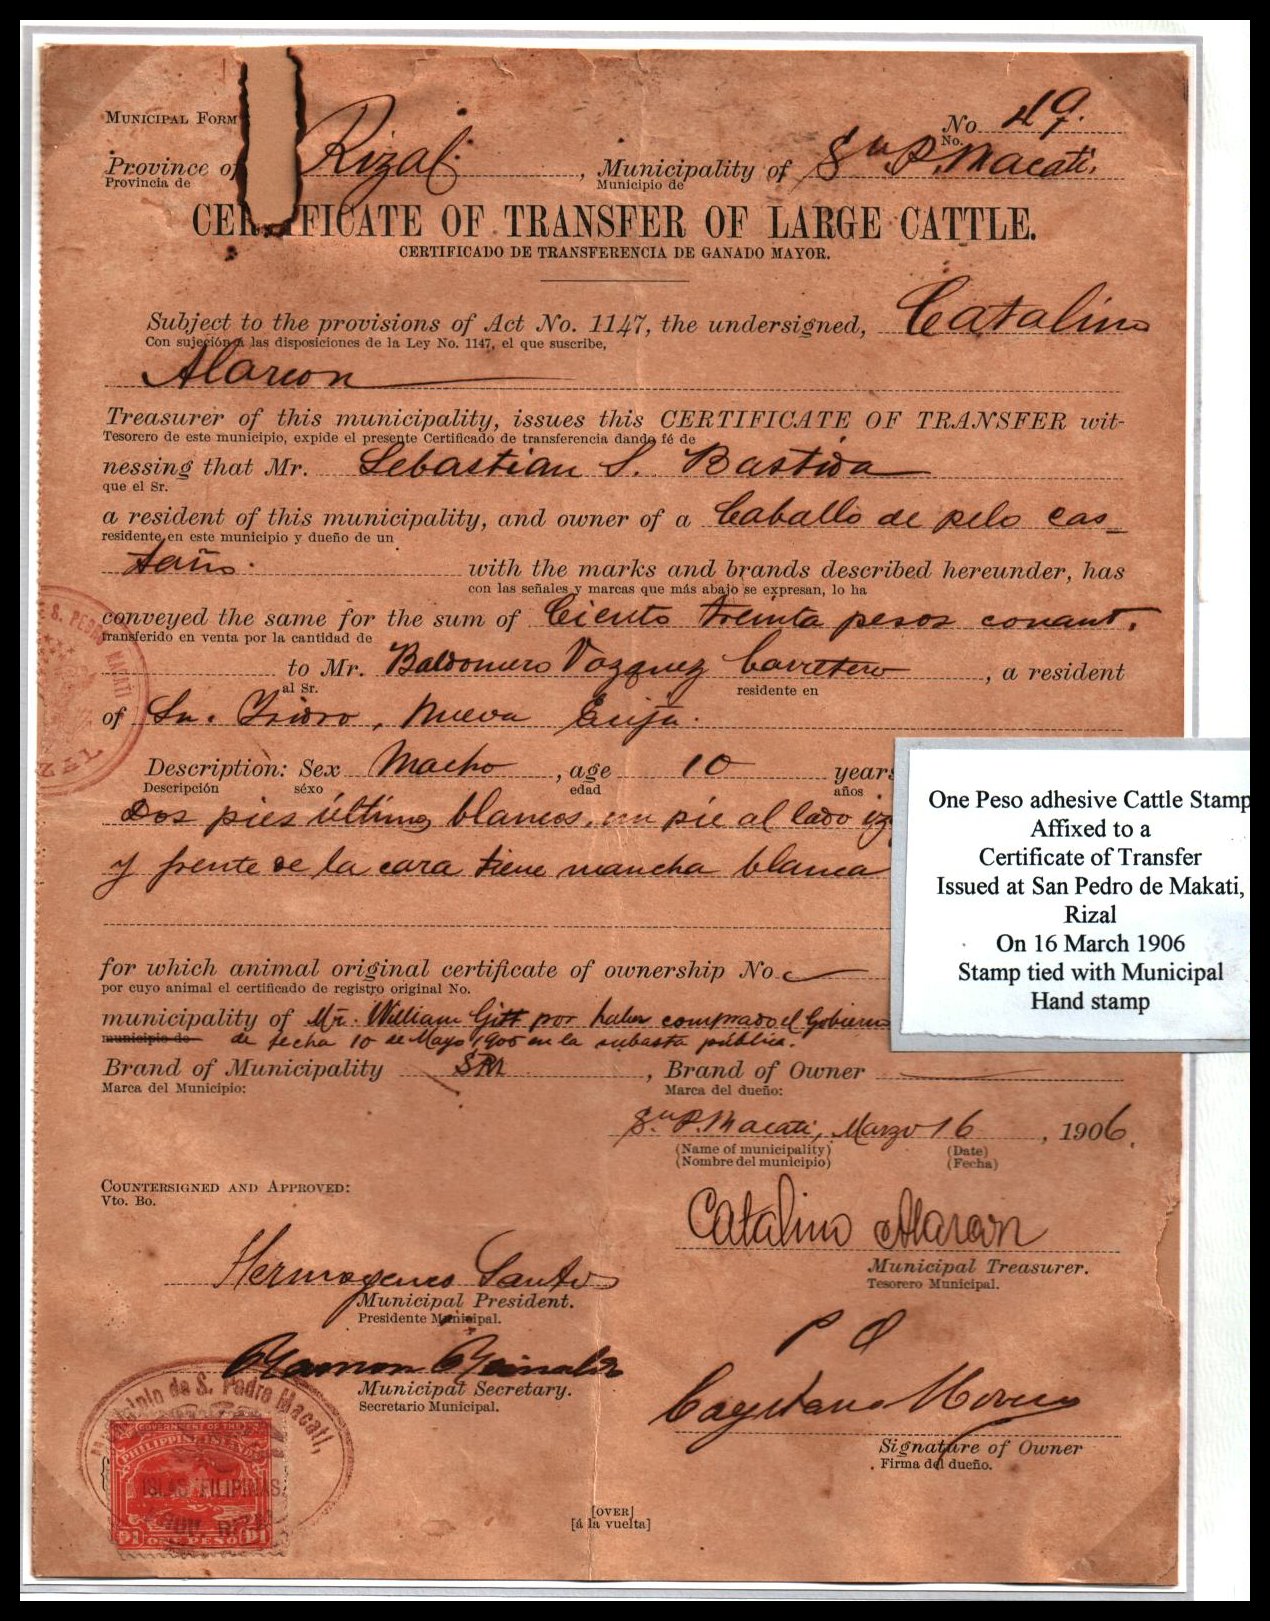 MUNICIPAL FORM
No. 49.
No.
Province of Rizal, Municipality of Sn P. Macati.
Provincia de Municipio de
CER FICATE OF TRANSFER OF LARGE CATTLE.
CERTIFICADO DE TRANSFERENCIA DE GANADO MAYOR.
Subject to the provisions of Act No. 1147, the undersigned, Catalino
Con sujeción á las disposiciones de la Ley No. 1147, el que suscribe,
Alarcon
Treasurer of this municipality, issues this CERTIFICATE OF TRANSFER wit-
Tesorero de este municipio, expide el presente Certificado de transferencia dando fé de
nessing that Mr. Sebastian S. Bastida
que el Sr.
a resident of this municipality, and owner of a Caballo de pelo cas_
residente en este municipio y dueño de un
taño. with the marks and brands described hereunder, has
con las señales y marcas que más abajo se expresan, lo ha
conveyed the same for the sum of Ciento treinta pesos conant.
transferido en venta por la cantidad de
to Mr. Baldomero Vazquez Carretero, a resident
al Sr. residente en
of Sn. Isidro, Nueva Ecija.
Description: Sex Macho, age 10 years
Descripción séxo edad años
Dos pies últimos blancos, un pie al lado iz
y frente de la cara tiene mancha blanca
for which animal original certificate of ownership No.
por cuyo animal el certificado de registro original No.
municipality of Mr. William Gitt por haber comprado el Gobierno
municipio de de fecha 10 de Mayo 1905 en la subasta pública.
Brand of Municipality SPM, Brand of Owner
Marca del Municipio: Marca del dueño:
Sn P. Macati, Marzo 16, 1906.
(Name of municipality) (Date)
(Nombre del municipio) (Fecha)
COUNTERSIGNED AND APPROVED:
Vto. Bo.
Catalino Alarcon
Municipal Treasurer.
Tesorero Municipal.
Hermogenes Santos
Municipal President.
Presidente Municipal.
P O
Ramon
Municipal Secretary.
Secretario Municipal.
Cayetano
Signature of Owner
Firma del dueño.
[OVER]
[á la vuelta]
S. PEDRO MACATI
Municipio de S. Pedro Macati,
GOVERNMENT OF THE
PHILIPPINE ISLANDS
ISLAS FILIPINAS
P1 ONE PESO P1
One Peso adhesive Cattle Stamp
Affixed to a
Certificate of Transfer
Issued at San Pedro de Makati,
Rizal
On 16 March 1906
Stamp tied with Municipal
Hand stamp